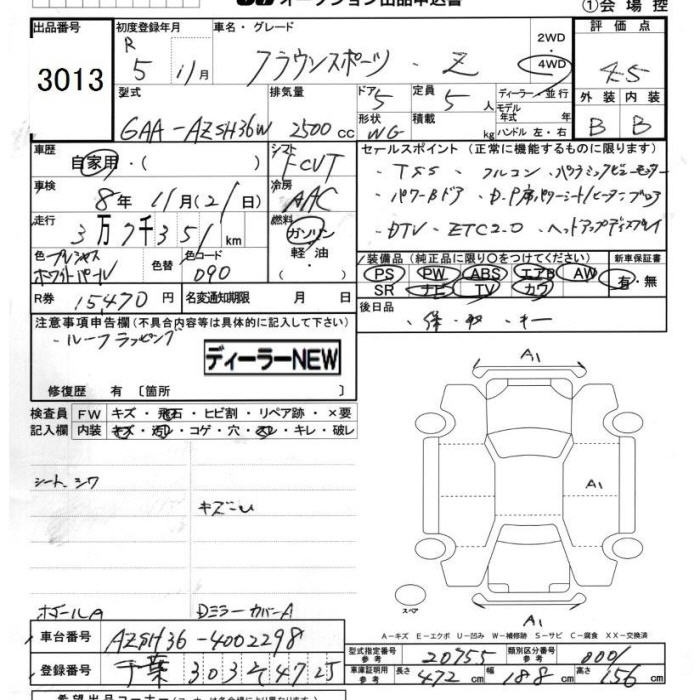 オークション出品申込書
①会場控
出品番号 初度登録年月 車名・グレード 評価点
3013 R 5 11月 クラウンスポーツ・Z 2WD・4WD 4.5
型式 排気量 ドア 5 定員 5人 ディーラー・並行 外装 内装
GAA-AZSH36W 2500cc 形状 WG 積載 kg モデル年式 年式 ハンドル 左・右 B B
車歴 自家用・( ) シフト FCVT セールスポイント (正常に機能するものに限ります)
・TSS ・フルコン ・パノラミックビューモニター
車検 8年 11月(21日) 冷房 AAC
・パワーBドア ・D.P席パワーシート/ヒーター・ブロア
走行 3万7千351km 燃料 ガソリン・軽油・
・DTV ・ETC2.0 ・ヘッドアップディスプレイ
色 プレシャスホワイトパール 色替 色コード 090
装備品(純正品に限り○をつけてください) 新車保証書
PS PW ABS エアB AW 有・無
SR ナビ TV カワ
R券 15470円 名変通知期限 月 日
後日品
・保・取・キー
注意事項申告欄(不具合内容等は具体的に記入して下さい)
・ルーフラッピング
ディーラーNEW
修復歴 有 〔箇所 〕
検査員 FW キズ・飛石・ヒビ割・リペア跡・×要
記入欄 内装 キズ・汚れ・コゲ・穴・スレ・キレ・破レ
A1
シート、シワ
キズ
A1
スペア
A1
ホイールA Dミラーカバー A
A-キズ E-エクボ U-凹み W-補修跡 S-サビ C-腐食 XX-交換済
車台番号 AZSH36-4002298
型式指定番号 参考 20755 類別区分番号 参考 0001
登録番号 千葉 303 そ 4725
車庫証明用 参考 長さ 472cm 幅 188cm 高さ 156cm
希望出品コーナー